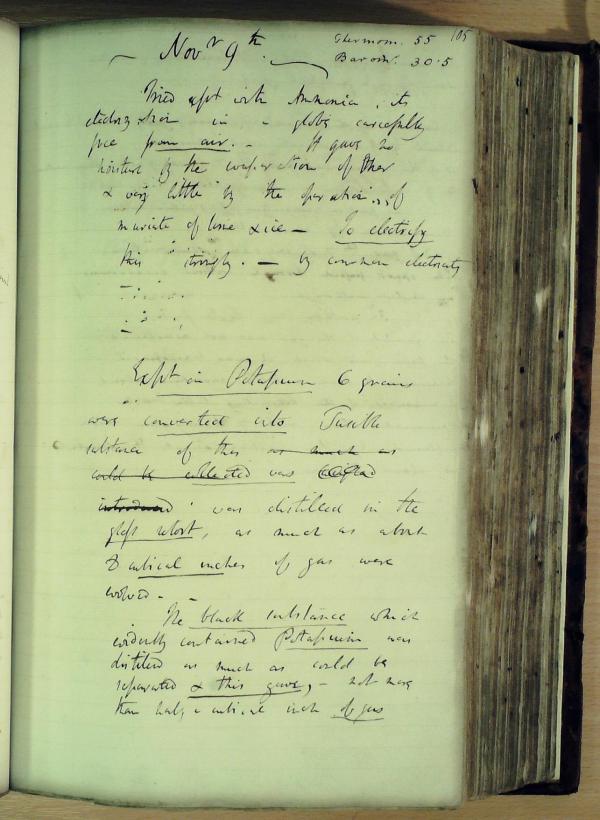 Novr 9th.
Thermom. 55
Barom. 30.5
105
Tried expt with Ammonia, its
electrization in a globe carefully
free from air. - It gave no
moisture by the evaporation of Ether
& very little by the operation of
muriate of lime & ice - To electrify
this strongly. - by common electricity
Expt on Potassium 6 grains
were converted into Fusible
substance of this as much as
could be collected was
introduced was distilled in the
glass retort, as much as about
8 cubical inches of gas were
evolved. -
The black substance which
evidently contained Potassium was
distilled as much as could be
separated & this gave, - not more
than half a cubical inch of gas